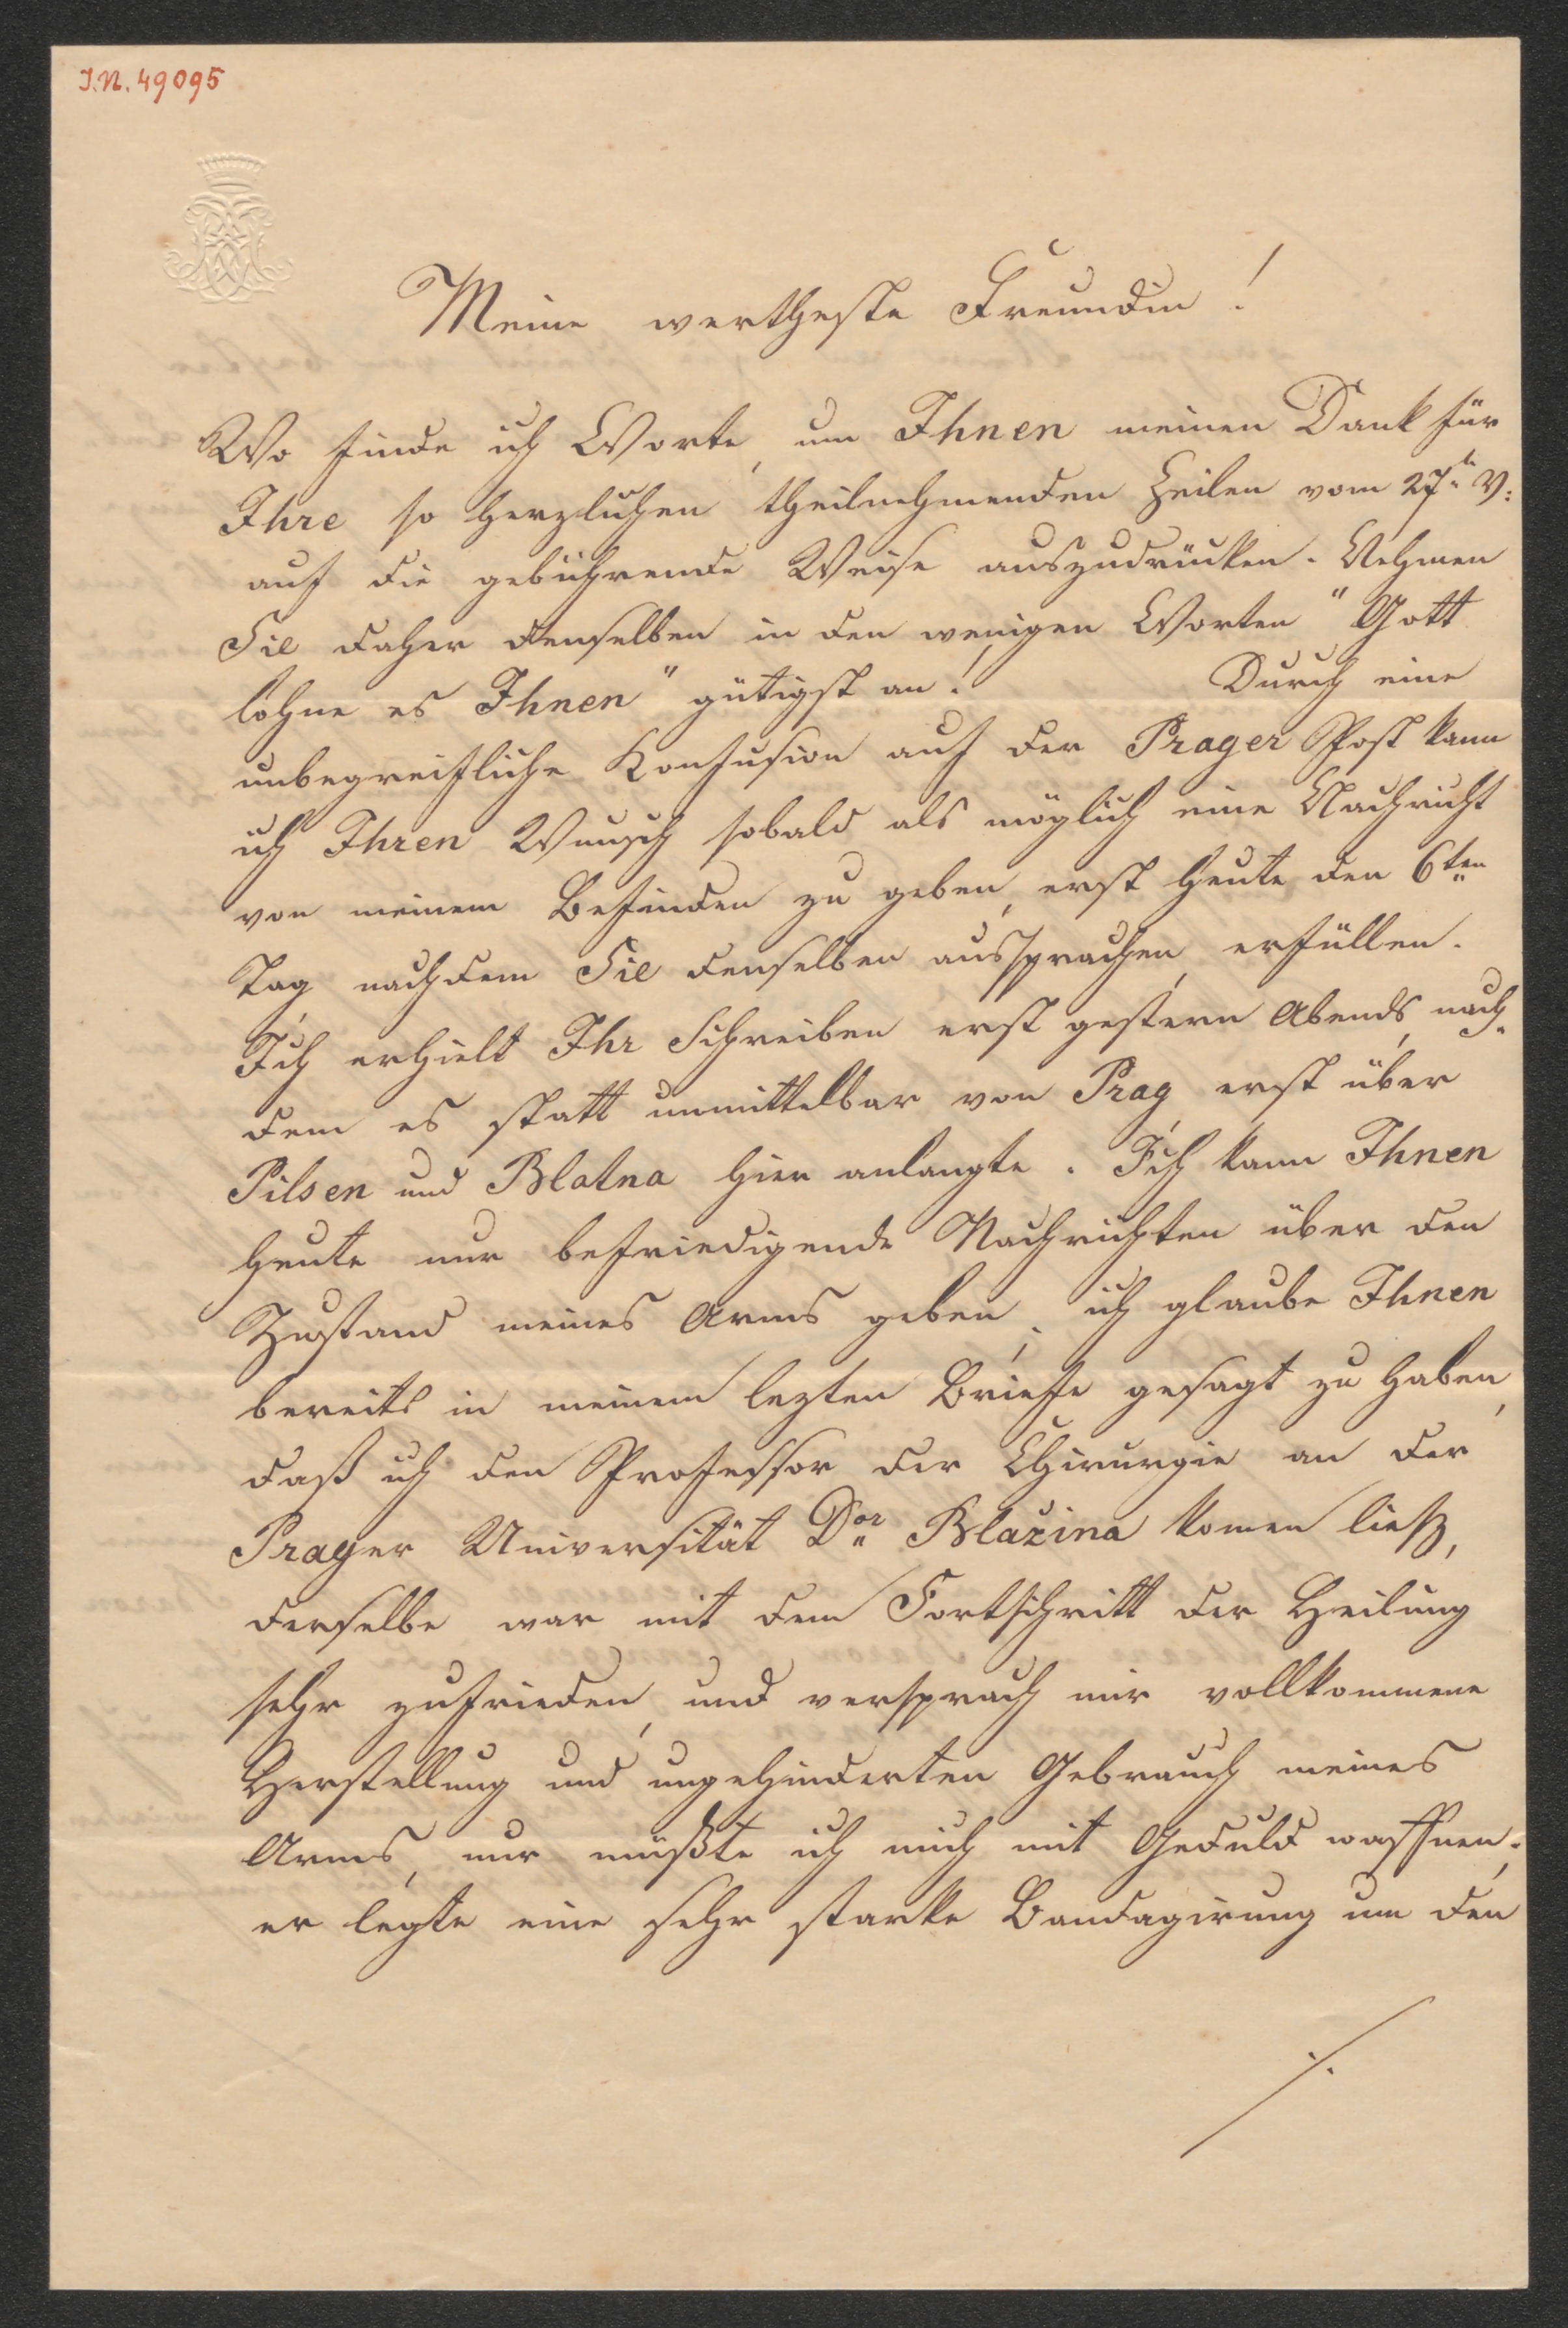 I.N. 49095
Meine wertheste Freundin!
Wo finde ich Worte, um Ihnen meinen Dank für
Ihre so herzlichen theilnehmenden Zeilen vom 27t. v:
auf die gebührende Weise auszudrücken. Nehmen
Sie daher denselben in den wenigen Worten "Gott
lohne es Ihnen" gütigst an! Durch eine
unbegreifliche Konfusion auf der Prager Post kann
ich Ihren Wunsch sobald als möglich eine Nachricht
von meinem Befinden zu geben, erst heute den 6ten
Tag nachdem Sie denselben aussprachen, erfüllen.
Ich erhielt Ihr Schreiben erst gestern Abends, nach-
dem es statt unmittelbar von Prag, erst über
Pilsen und Blatna hier anlangte. Ich kann Ihnen
heute nur befriedigende Nachrichten über den
Zustand meines Arms geben; ich glaube Ihnen
bereits in meinem lezten Briefe gesagt zu haben,
daß ich den Professor der Chirurgie an der
Prager Universität Dor Blažina komen ließ,
derselbe war mit dem Fortschritt der Heilung
sehr zufrieden, und versprach mir vollkommene
Herstellung und ungehinderten Gebrauch meines
Arms, nur müßte ich mich mit Geduld waffnen;
er legte eine sehr starke Bandagirung um den
./.